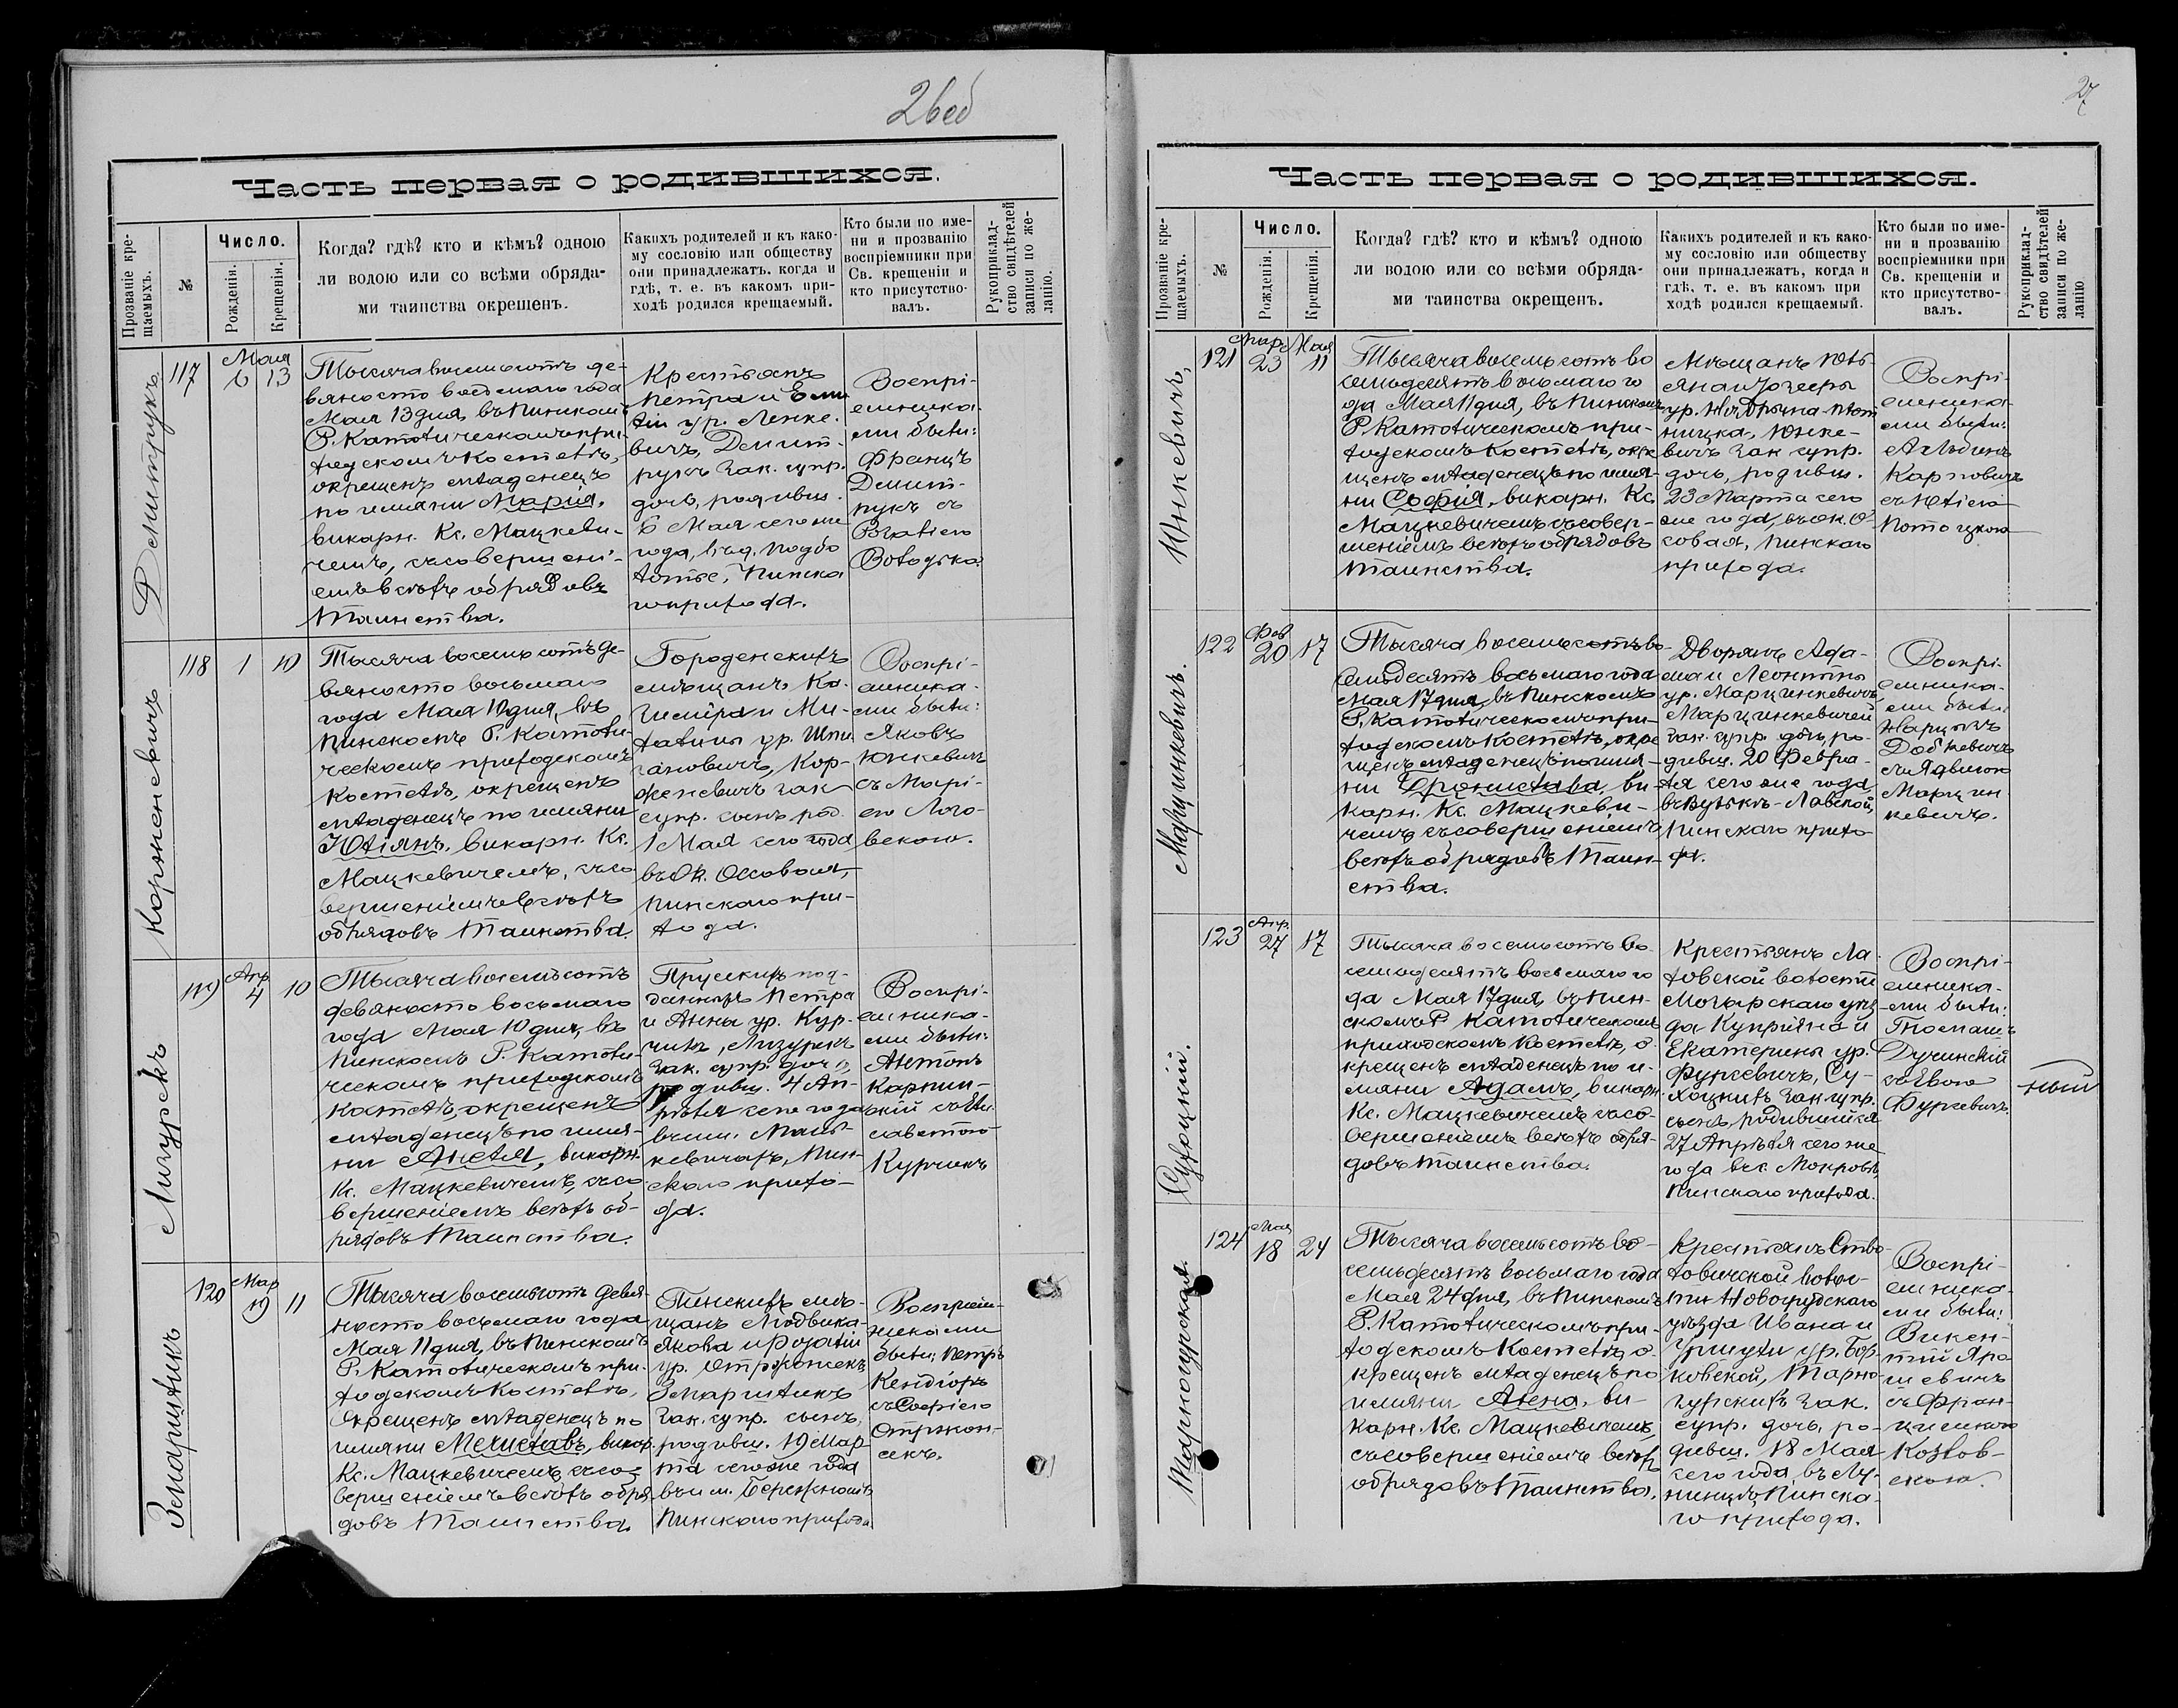 26об
Часть первая о родившихся.
Прозваніе кре-
щаемыхъ.
№
Число.
Рожденія.
Крещенія.
Когда? гдѣ? кто и кѣмъ? одною
ли водою или со всѣми обряда-
ми таинства окрещенъ.
Какихъ родителей и къ како-
му сословію или обществу
они принадлежатъ. когда и
гдѣ, т. е. въ какомъ при-
ходѣ родился крещаемый.
Кто были по име-
ни и прозванію
воспріемники при
Св. крещеніи и
кто присутство-
валъ.
Рукоприклад-
ство свидѣтелей
записи по же-
ланію.
Демитрукъ.
117
Мая
6 13
Тысяча восемьсотъ де-
вяносто восьмаго года
Мая 13 дня, въ Пинскомъ
Р. Католическомъ при-
ходскомъ Костелѣ,
окрещенъ младенецъ
по имяни Марія,
викарн. Кс. Мацкеви-
чемъ, съ совершені-
емъ всѣхъ обрядовъ
Таинства.
Крестьянъ
Петра и Еми
ліи ур. Ленке-
вичъ, Демит-
рукъ зак. супр.
дочь, родивш.
6 Мая сего же
года, въ д. Подбо
лотье, Пинска
го прихода.
Воспрі-
емника-
ми были:
Францъ
Демит-
рукъ съ
Розаліею
Володько.
Корженевичъ
118
1 10
Тысяча восемьсотъ де-
вяносто восьмаго
года Мая 10 дня, въ
Пинскомъ Р. Католи-
ческомъ приходскомъ
Костелѣ, окрещенъ
младенецъ по имяни
Юліянъ, викарн. Кс.
Мацкевичемъ, съ со
вершеніемъ всѣхъ
обрядовъ Таинства.
Городенскихъ
мѣщанъ Ка-
зиміра и Ми-
халины ур.
Кор-
женевичъ зак
супр. сынъ, род.
1 Мая сего года
въ Ок. Оссовая,
Пинскаго при-
хода.
Воспрі-
емника-
ми были:
Яковъ
Юнкевичъ
съ Марі-
ею Лого-
вскою.
Лизурекъ
119
Апр
4 10
Тысяча восемьсотъ
девяносто восьмаго
года Мая 10 дня, въ
Пинскомъ Р. Католи-
ческомъ приходскомъ
Костелѣ, окрещенъ
младенецъ по имя-
ни Анеля, викарн.
Кс. Мацкевичемъ, съ со
вершеніемъ всѣхъ об-
рядовъ Таинства.
Прусскихъ под-
данныхъ Петра
и Анны ур. Кур-
чикъ, Лизурекъ
зак. супр. дочь,
родивш. 4 Ап-
рѣля сего года
въ им.
кевичахъ, Пин-
скаго прихо-
да.
Воспрі-
емника-
ми были:
Антонъ
Карпин-
скій съ Ели-
саветою
Курчикъ
Земаритикъ
120
Мар
19 11
Тысяча восемьсотъ девя-
носто восьмаго года
Мая 11 дня, въ Пинскомъ
Р. Католическомъ при-
ходскомъ Костелѣ,
окрещенъ младенецъ по
имяни Мечиславъ, викар.
Кс. Мацкевичемъ, съ со-
вершеніемъ всѣхъ обря-
довъ Таинства.
Пинскихъ мѣ-
щанъ Людвика-
Якова и Розаліи
ур.
зак. супр. сынъ,
родивш. 19 Мар-
та сего же года
въ им. Бережномъ
Пинскаго прихода
Воспріем-
никами
были: Петръ
съ Софіею
27
Часть первая о родившихся.
Прозваніе кре-
щаемыхъ.
№
Число.
Рожденія.
Крещенія.
Когда? гдѣ? кто и кѣмъ? одною
ли водою или со всѣми обряда-
ми таинства окрещенъ.
Какихъ родителей и къ како-
му сословію или обществу
они принадлежатъ, когда и
гдѣ, т. е. въ какомъ при
ходѣ родился крещаемый.
Кто были по име-
ни и прозванію
воспріемники при
Св. крещеніи и
кто присутство-
валъ.
Рукоприклад-
ство свидѣтелей
записи по же-
ланію
Юнкевичъ,
121
Мар. Мая
23 11
Тысяча восемьсотъ во
семьдесятъ восьмаго го
да Мая 11 дня, въ Пинскомъ
Р. Католическомъ при-
ходскомъ Костелѣ, окре
щенъ младенецъ по имя-
ни Софія, викарн. Кс.
Мацкевичемъ съ совер-
шеніемъ всѣхъ обрядовъ
Таинства.
Мѣщанъ Юлі-
яна и Іозефы
ур.
ницка, Юнке-
вичъ зак. супр.
дочь, родивш.
23 Марта сего
же года, въ ок. О
совая, Пинскаго
прихода.
Воспрі-
емника-
ми были:
Альбинъ
Карповичъ
съ Юліею
Потоцкою
Марцинкевичъ.
122
Фев
20 17
Тысяча восемьсотъ во-
семьдесятъ восьмаго года
Мая 17 дня, въ Пинскомъ
Р. Католическомъ при-
ходскомъ Костелѣ, окре
щенъ младенецъ по имя-
ни Бронислава, ви-
карн. Кс. Мацкеви-
чемъ съ совершеніемъ
всѣхъ обрядовъ Таин-
ства.
Дворянъ Ада-
ма и Леонтины
ур. Марцинкевичъ,
Марцинкевичей
зак. супр. дочь, ро-
дивш. 20 Февра-
ля сего же года,
въ Вулькѣ-Лавской,
Пинскаго прихо-
да.
Воспрі-
емника-
ми были
Нарцызъ
Добкевичъ
съ Ядвигою
Марцин
кевичъ.
Сухоцкій.
123
Апр.
27 17
Тысяча восемьсотъ во-
семьдесятъ восьмаго го
да Мая 17 дня, въ Пин-
скомъ Р. Католическомъ
приходскомъ Костелѣ, о-
крещенъ младенецъ по и-
мяни Адамъ, викарн.
Кс. Мацкевичемъ съ со-
вершеніемъ всѣхъ обря-
довъ Таинства.
Крестьянъ Ла-
ховской волости
Мозырскаго уѣз
да Купріяна и
Екатерины ур.
Фурсевичъ, Су-
хоцкихъ зак. супр.
сынъ, родившійся
27 Апрѣля сего же
года въ с. Мокровѣ,
Пинскаго прихода.
Воспрі-
емника-
ми были:
Томашъ
Дучинскій
съ Евою
Фурсевичъ.
Тарногурская.
124
Мая
18 24
Тысяча восемьсотъ во-
семьдесятъ восьмаго года
Мая 24 дня, въ Пинскомъ
Р. Католическомъ при-
ходскомъ Костелѣ, о-
крещенъ младенецъ по
имяни Анна, ви-
карн. Кс. Мацкевичемъ,
съ совершеніемъ всѣхъ
обрядовъ Таинства.
Крестьянъ Ство-
ловичской волос-
ти Новогрудскаго
уѣзда Ивана и
Уршули ур. Бор-
ковской, Тарно-
гурскихъ зак.
супр. дочь, ро-
дивш. 18 Мая
сего года въ Лу-
нинцѣ Пинска-
го прихода.
Воспрі-
емника-
ми были:
Викен-
тій Яро
шевичъ
съ Фран-
цишкою
Козлов-
скою.